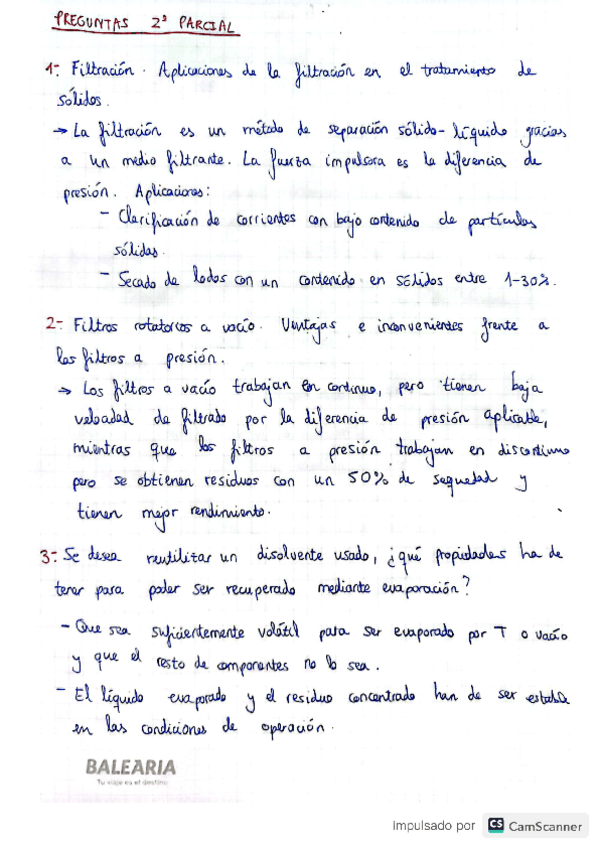 PREGUNTAS 2º PARCIAL
1- Filtración. Aplicaciones de la filtración en el tratamiento de
sólidos.
→ La filtración es un método de separación sólido-líquido gracias
a un medio filtrante. La fuerza impulsora es la diferencia de
presión. Aplicaciones:
- Clarificación de corrientes con bajo contenido de partículas
sólidas.
- Secado de lodos con un contenido en sólidos entre 1-30%.
2- Filtros rotatorios a vacío. Ventajas e inconvenientes frente a
los filtros a presión.
→ Los filtros a vacío trabajan en continuo, pero tienen baja
velocidad de filtrado por la diferencia de presión aplicable,
mientras que los filtros a presión trabajan en discontinuo
pero se obtienen residuos con un 50% de sequedad y
tienen mejor rendimiento.
3- Se desea reutilizar un disolvente usado, ¿qué propiedades ha de
tener para poder ser recuperado mediante evaporación?
- Que sea suficientemente volátil para ser evaporado por T o vacío
y que el resto de componentes no lo sea.
- El líquido evaporado y el residuo concentrado han de ser estable
en las condiciones de operación.
BALEARIA
Tu viaje es el destino
Impulsado por CS CamScanner